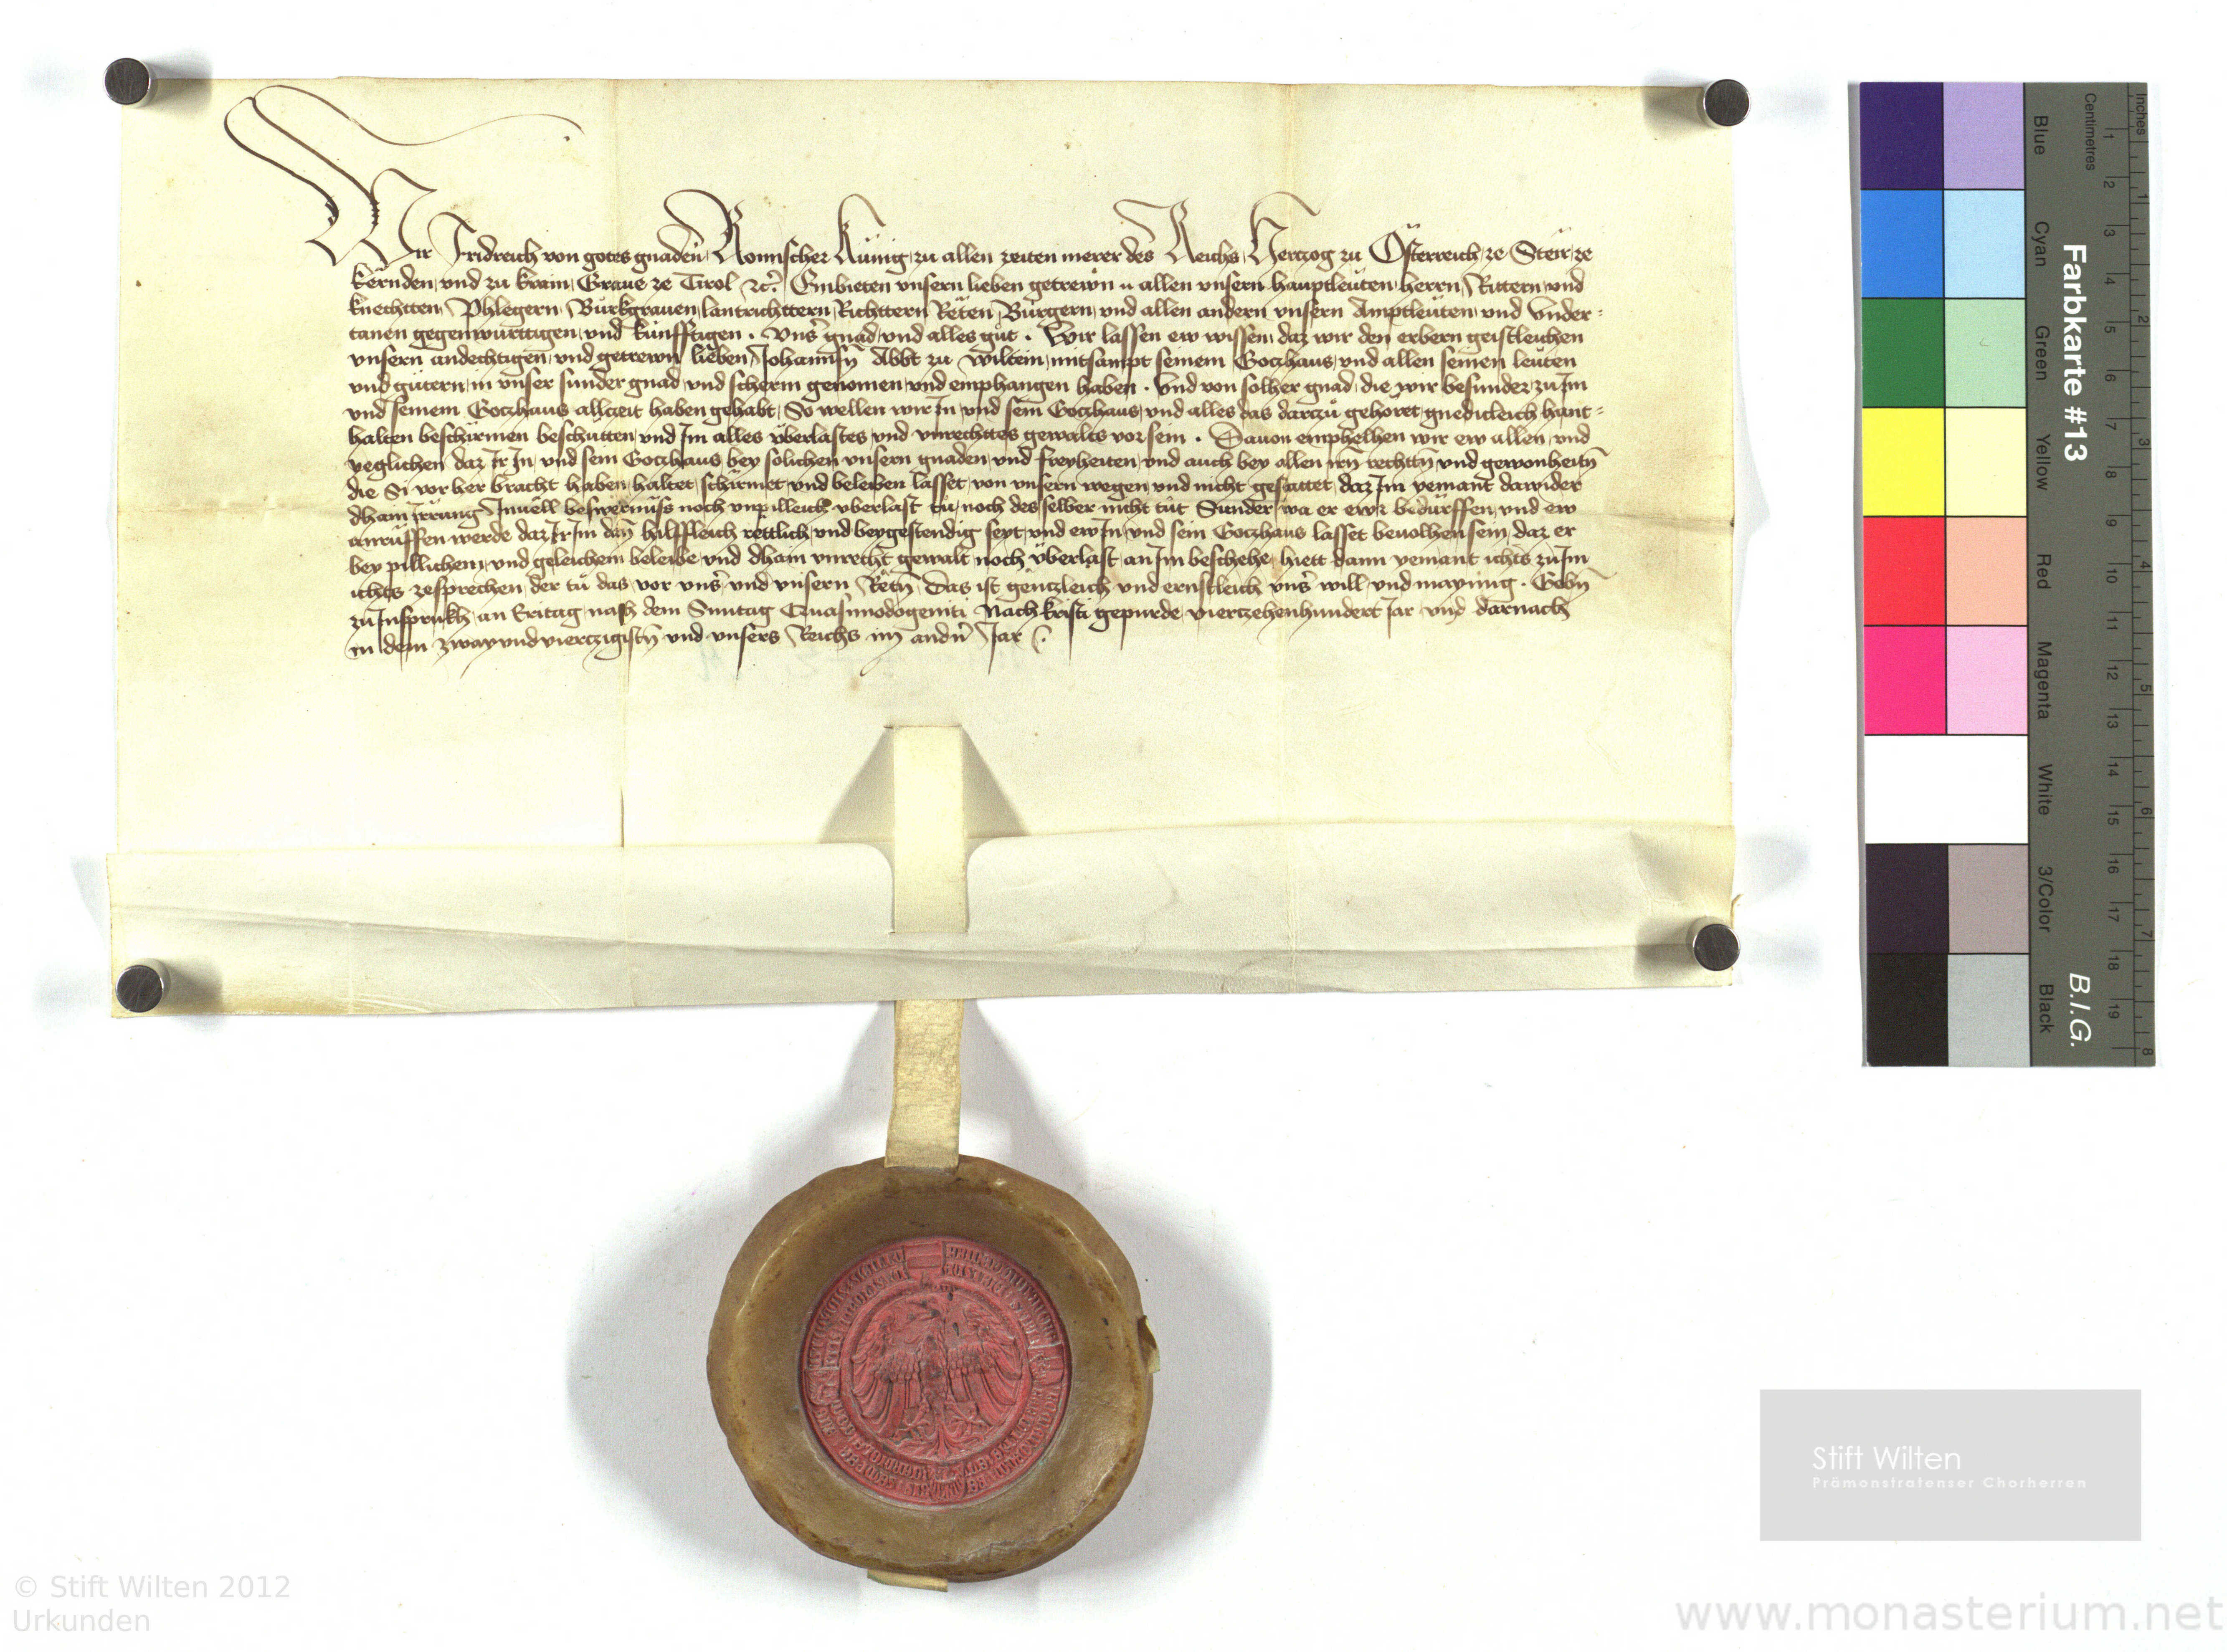 Wir Fridreich von gotes gnaden Romischer Kunig zu allen zeiten merer des Reichs Herczog zu Österreich ze Steir ze
kernden und zu krain Graue ze Tirol etc. Embieten unsern lieben getrewn allen unsern hauptleuten herrn Rittern und
knechtten Phlegern Burkgrauen lantrichttern Richttern Reten Burgern und allen andern unsern Amptleuten und Under-
tanen gegenwurttigen und kunfftigen . Uns gnad und alles gut . Wir lassen ew wissen daz wir den erbern geistleichen
unsern andechtigen und getrewn lieben Johannsn Abbt zu Wiltein mitsampt seinem Goczhaus und allen seinen leuten
und gutern in unser sunder gnad und scherm genomen und emphangen haben . Und von solher gnad die wir besunder zu Im
und seinem Goczhaus allczeit haben gehabt So wellen wir In und sein Goczhaus und alles das darczu gehoret gnedicleich hant-
halten beschirmen beschutten und Im alles uberlastes und unrechttes gewalts vor sein . Dauon emphelhen wir ew allen und
yeglichen daz Ir In und sein Goczhaus bey solichen unsern gnaden und freyheiten und auch bey allen irn rechttn und gewonheitn
die Si vor her bracht haben haltet schirmet und beleiben lasset von unsern wegen und nicht gestattet daz Im yemant dawider
dhain irrung Inuell beswernuss noch unpilleich uberlast tu noch des selber nicht tut Sunder wa er ewr bedurffen und ew
anruffen werde daz Ir Im dan hilffleich rettlich und beygestendig seyt und ew In und sein Goczhaus lasset beuolhen sein daz er
bey pillichem und geleichem beleibe und dham unrecht gewalt noch uberlast an Im beschehe hiett dann yemant ichts zu Im
ichts zesprechen der tu das vor uns und unsern Retn Das ist genczleich und ernstleich uns will und maynung . Gebn
zu Insprukh an Eritag nach dem Sunntag Quasimodogeniti Nach kristi gepurde vierczehenhundert Jar und darnach
in dem zway und vierczigistn und unsers Reichs im andn Jar
Farbkarte #13
B.I.G.
Blue Cyan Green Yellow Red Magenta White 3/Color Black
Centimetres
Inches
1 2 3 4 5 6 7 8 9 10 11 12 13 14 15 16 17 18 19
1 2 3 4 5 6 7 8
Stift Wilten
Prämonstratenser Chorherren
© Stift Wilten 2012
Urkunden
www.monasterium.net